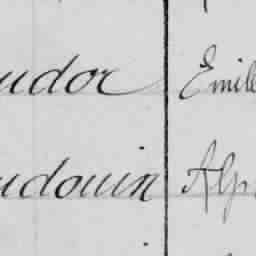 udor Emill
udouin Alp